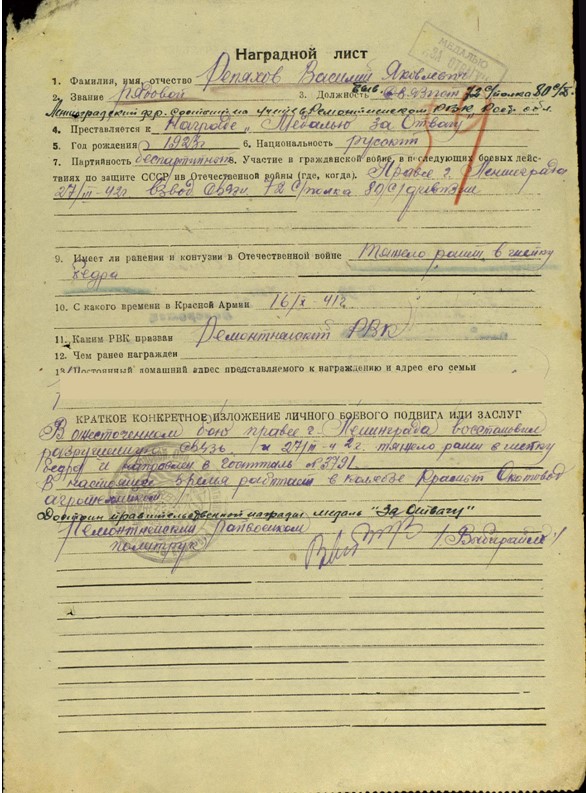 МЕДАЛЬЮ
"ЗА ОТВАГУ"
Наградной лист
1. Фамилия, имя, отчество Репяхов Василий Яковлевич
2. Звание рядовой 3. Должность быв. связист 72 с/полка 80 с/д
Ленинградский фр. состоит на учете в Ремонтненском РВК Рост. обл.
4. Преставляется к награде "Медалью за Отвагу"
5. Год рождения 1923г 6. Национальность русский
7. Партийность беспартийн 8. Участие в гражданской войне, в последующих боевых дейс-
твиях по защите СССР и в Отечественной войны (где, когда). Правее г. Ленинграда
27/III-42г взвод связи 72 с/полка 80 с/дивизии
9. Имеет ли ранения и контузии в Отечественной войне тяжело ранит в
бедра
10. С какого времени в Красной Армии 16/X-41г.
11. Каким РВК призван Ремонтненский РВК
12. Чем ранее награжден
13. Постоянный домашний адрес представляемого к награждению и адрес его семьи
КРАТКОЕ КОНКРЕТНОЕ ИЗЛОЖЕНИЕ ЛИЧНОГО БОЕВОГО ПОДВИГА ИЛИ ЗАСЛУГ
В ожесточенном бою правее г. Ленинграда восстановил
разрушенную связь, и 27/III-42г. тяжело ранен в
бедра и направлен в госпиталь
В настоящее время работает в колхозе Красный Скотовод
агротехником
Достоин правительственной награды медаль "За Отвагу"
Ремонтненский Райвоенком
политрук